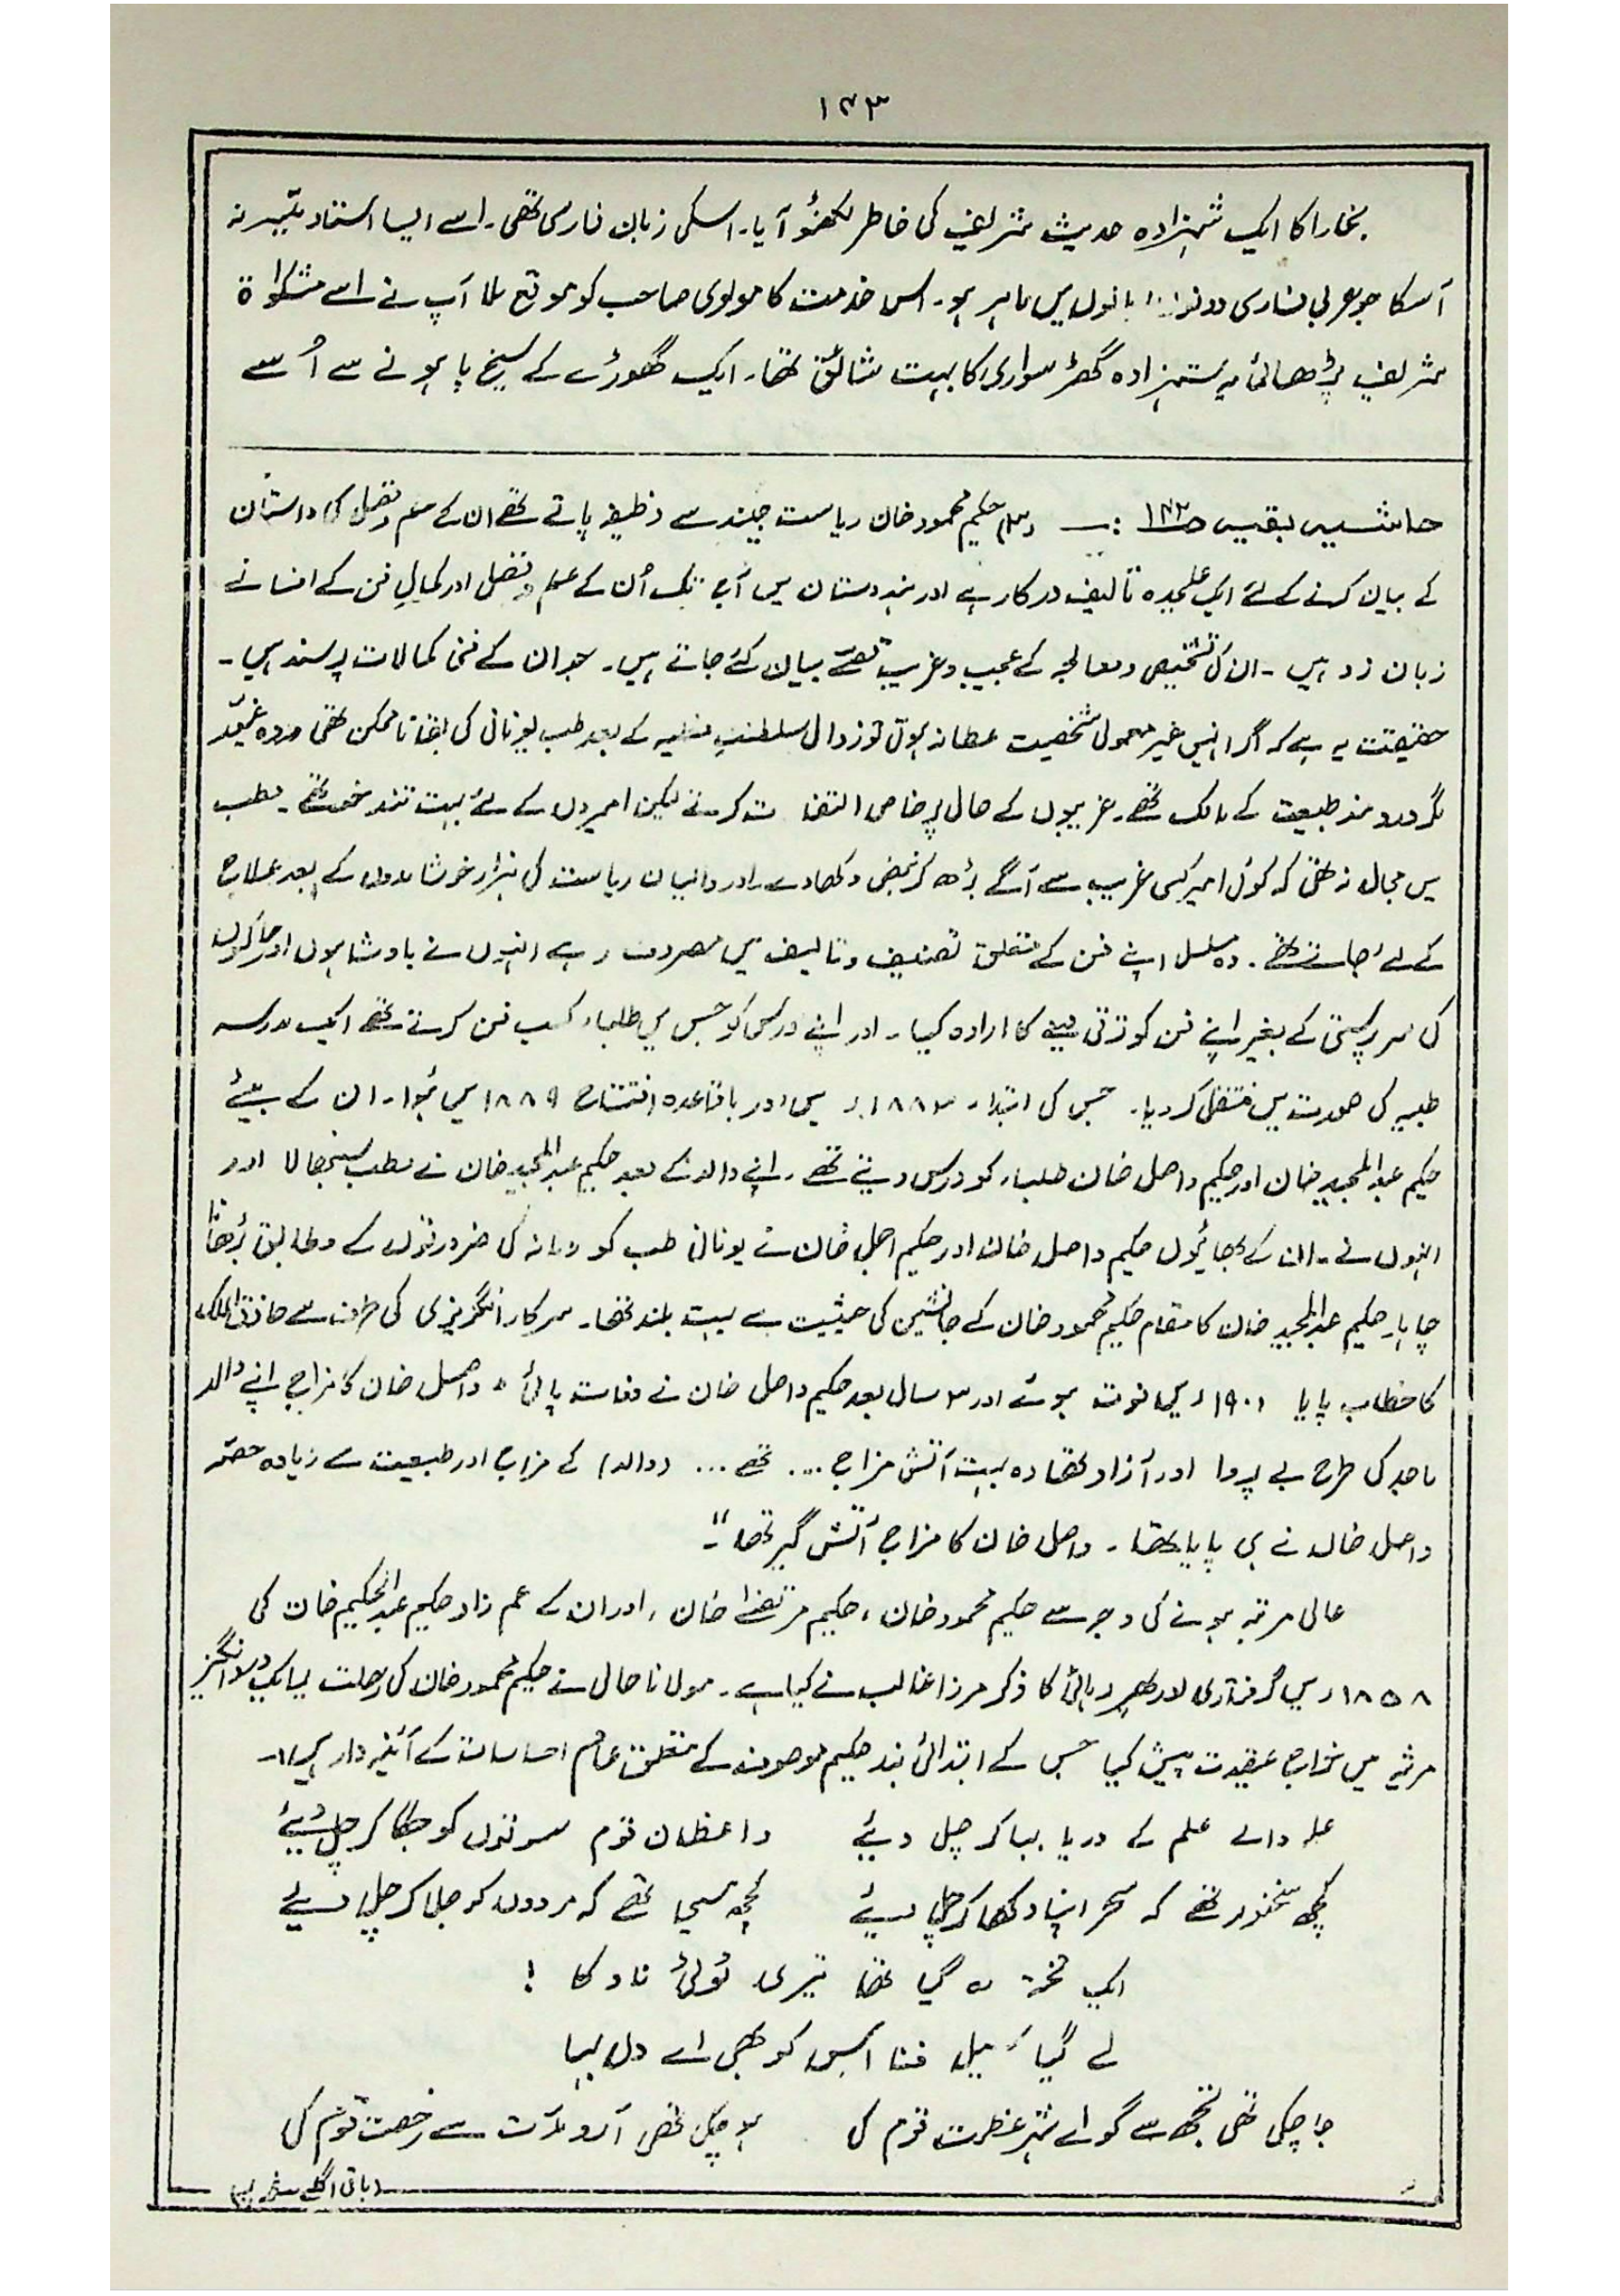 ۱۴۳
بخارا کا ایک شہزادہ حدیث شریف کی خاطر لکھنؤ آیا۔ اسکی زبان فارسی تھی۔ اسے ایسا استاد میّسر نہ
آسکا جو عربی فارسی دونوں زبانوں میں ماہر ہو۔ اس خدمت کا مولوی صاحب کو موقع ملا آپ نے اسے مشکوٰۃ
شریف پڑھائی یہ شہزادہ گھڑ سواری کا بہت شائق تھا۔ ایک گھوڑے کے سیخ پا ہونے سے اُسے
حاشیہ بقیہ ص۱۴۲ :۔ حکیم محمود خان ریاست جیند سے وظیفہ پاتے تھے ان کے علم و فضل کی داستان
کے بیان کرنے کے لئے ایک علیحدہ تالیف درکار ہے اور ہندوستان میں آج تک اُن کے علم و فضل اور کمالِ فن کے افسانے
زبان زد ہیں ۔ ان کی تشخیص و معالجہ کے عجیب و غریب قصّے بیان کئے جاتے ہیں۔ جو ان کے فنی کمالات پر سند ہیں۔
حقیقت یہ ہے کہ اگر انہیں غیر معمولی شخصیت عطا نہ ہوتی تو زوال سلطنتِ مغلیہ کے بعد طب یونانی کی بقا ناممکن تھی وہ غیّور
مگر درد مند طبیعت کے مالک تھے۔ غریبوں کے حال پر خاص التفات کرتے لیکن امیروں کے لئے بہت تند خو تھے۔ مطب
میں مجال نہ تھی کہ کوئی امیر کسی غریب سے آگے بڑھ کر نبض دکھا دے۔ اور والیان ریاست کی ہزار خوشامدوں کے بعد علاج
کے لئے جاتے تھے۔ وہ مسلسل اپنے فن کے متعلق تصنیف و تالیف میں مصروف رہے انہوں نے بادشاہوں اور حاکموں
کی سرپرستی کے بغیر اپنے فن کو ترقی دینے کا ارادہ کیا۔ اور اپنے درس کو جس میں طلباء کسب فن کرتے تھے ایک مدرسہ
طبیہ کی صورت میں منتقل کر دیا۔ جس کی ابتداء ۱۸۸۳ء میں اور باقاعدہ افتتاح ۱۸۸۹ میں ہُوا۔ ان کے بیٹے
حکیم عبدالمجید خان اور حکیم واصل خان طلباء کو درس دیتے تھے۔ اپنے والد کے بعد حکیم عبدالمجید خان نے مطب سنبھالا اور
انہوں نے۔ ان کے بھائیوں حکیم واصل خان اور حکیم اجمل خان نے یونانی طب کو زمانہ کی ضرورتوں کے مطابق بڑھانا
چاہا۔ حکیم عبدالمجید خان کا مقام حکیم محمود خان کے جانشین کی حیثیت سے بہت بلند تھا۔ سرکار انگریزی کی طرف سے حاذق الملک
کا خطاب پایا ۱۹۰۱ء میں فوت ہوئے اور ۳ سال بعد حکیم واصل خان نے وفات پائی ۔ واصل خان کا مزاج اپنے والد
ماجد کی طرح بے پروا اور آزاد تھا وہ بہت آتش مزاج ... تھے ... (والد) کے مزاج اور طبیعت سے زیادہ حصّہ
واصل خان نے ہی پایا تھا۔ واصل خان کا مزاج آتش گیر تھا"۔
عالی مرتبہ ہونے کی وجہ سے حکیم محمود خان، حکیم مرتضےٰ خان، اور ان کے عم زاد حکیم عبدالحکیم خان کی
۱۸۵۸ء میں گرفتاری اور پھر رہائی کا ذکر مرزا غالب نے کیا ہے۔ مولانا حالی نے حکیم محمود خان کی رحلت پر ایک درد انگیز
مرثیہ میں خراج عقیدت پیش کیا جس کے ابتدائی بند حکیم موصوف کے متعلق عام احساسات کے آئینہ دار ہیں۔
علم والے علم کے دریا بہا کر چل دیئے واعظان قوم سوتوں کو جگا کر چل دیئے
کچھ سخنور تھے کہ سحر اپنا دکھا کر چل دیئے کچھ مسیحا تھے کہ مردوں کو جلا کر چل دیئے
ایک تختہ رہ گیا تھا تیری ٹوٹی ناؤ کا !
لے گیا سیلِ فنا اس کو بھی اے دل بہا
جا چکی تھی تجھ سے گو اے شہر عظمت قوم کی ہو چکی تھی آبرو مدّت سے رخصت قوم کی
(باقی اگلے صفحہ پر)